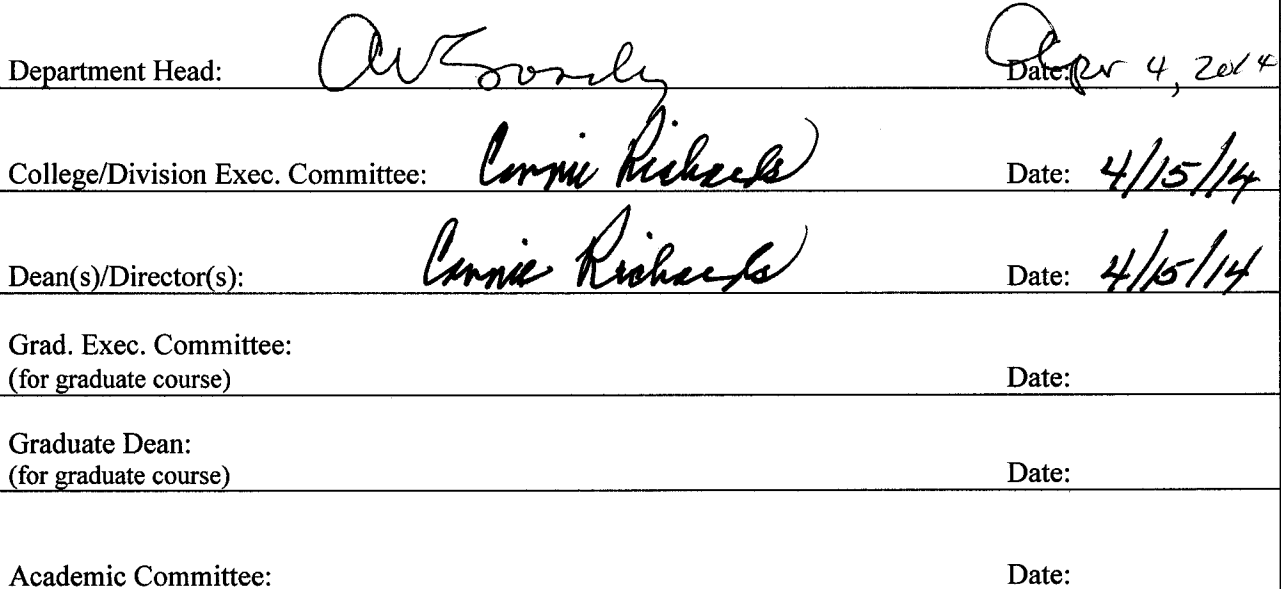 Department Head: Date: Apr 4, 2014
College/Division Exec. Committee: Connie Richards Date: 4/15/14
Dean(s)/Director(s): Connie Richards Date: 4/15/14
Grad. Exec. Committee:
(for graduate course) Date:
Graduate Dean:
(for graduate course) Date:
Academic Committee: Date: